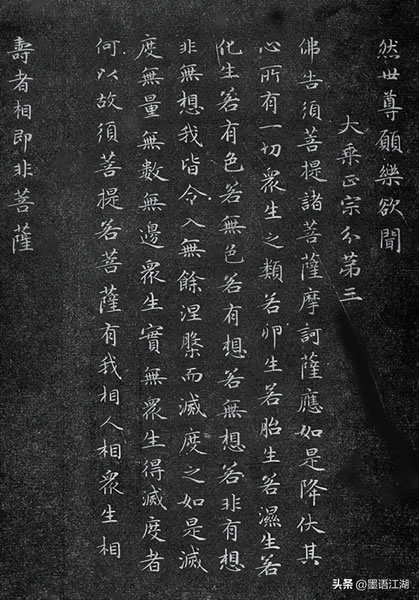 然世尊願樂欲聞
大乘正宗分第三
佛告須菩提諸菩薩摩訶薩應如是降伏其
心所有一切眾生之類若卵生若胎生若濕生若
化生若有色若無色若有想若無想若非有想
非無想我皆令入無餘涅槃而滅度之如是滅
度無量無數無邊眾生實無眾生得滅度者
何以故須菩提若菩薩有我相人相眾生相
壽者相即非菩薩
头条 @墨语江湖